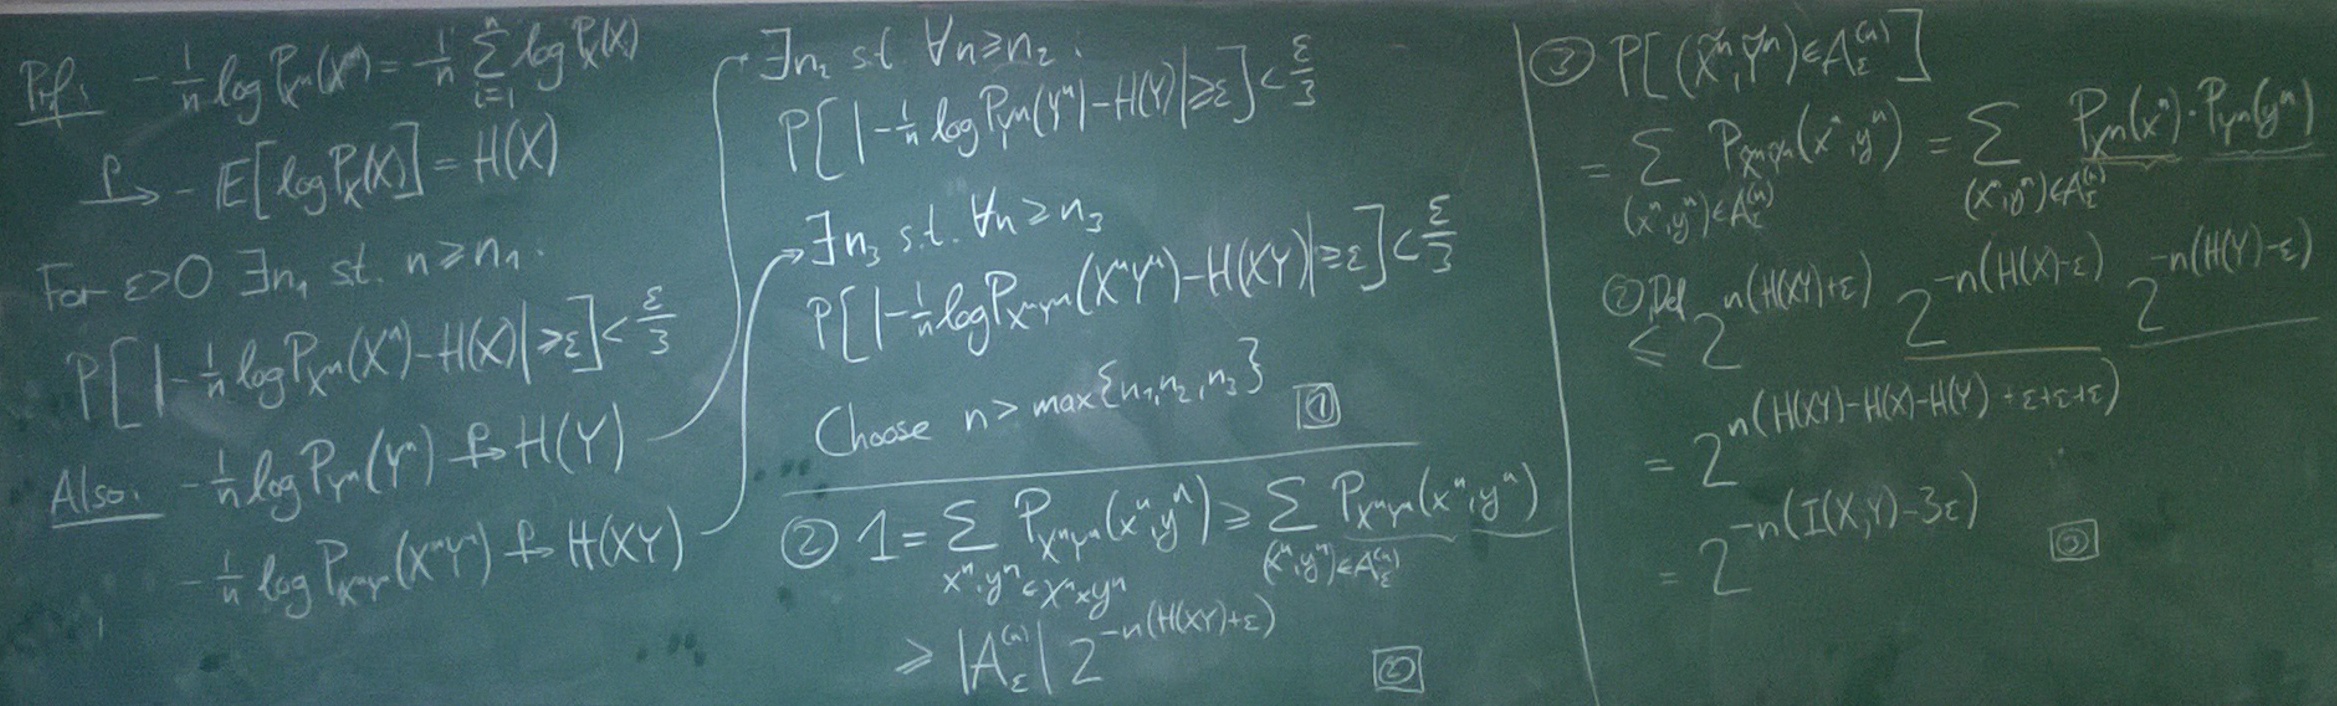 Prf: -1/n log P_{X^n}(X^n) = -1/n Σ_{i=1}^{n} log P_X(X)
→^P - E[log P_X(X)] = H(X)
For ε>0 ∃n₁ st. n ≥ n₁:
P[|-1/n log P_{X^n}(X^n) - H(X)| ≥ ε] < ε/3
Also: -1/n log P_{Y^n}(Y^n) →^P H(Y)
-1/n log P_{X^nY^n}(X^nY^n) →^P H(XY)
∃n₂ st ∀n≥n₂:
P[|-1/n log P_{Y^n}(Y^n) - H(Y)| ≥ ε] < ε/3
∃n₃ s.t. ∀n≥n₃
P[|-1/n log P_{X^nY^n}(X^nY^n) - H(XY)| ≥ ε] < ε/3
Choose n > max{n₁, n₂, n₃} ①
② 1 = Σ_{x^n,y^n ∈ X^n×Y^n} P_{X^nY^n}(x^n,y^n) ≥ Σ_{(x^n,y^n)∈A_ε^{(n)}} P_{X^nY^n}(x^n,y^n)
≥ |A_ε^{(n)}| 2^{-n(H(XY)+ε)} ②
③ P[(X̃^n,Ỹ^n) ∈ A_ε^{(n)}]
= Σ_{(x^n,y^n)∈A_ε^{(n)}} P_{X̃^nỸ^n}(x^n,y^n) = Σ_{(x^n,y^n)∈A_ε^{(n)}} P_{X^n}(x^n)·P_{Y^n}(y^n)
②,Def ≤ 2^{n(H(XY)+ε)} 2^{-n(H(X)-ε)} 2^{-n(H(Y)-ε)}
= 2^{n(H(XY)-H(X)-H(Y)+ε+ε+ε)}
= 2^{-n(I(X;Y)-3ε)} ③